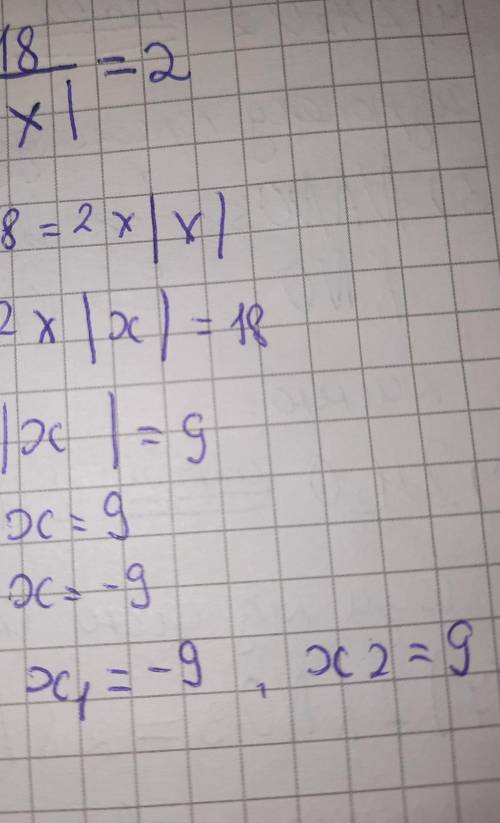 18
x| = 2
8 = 2 x |x|
2 x |x| = 18
|x| = 9
x = 9
x = -9
x1 = -9 , x2 = 9